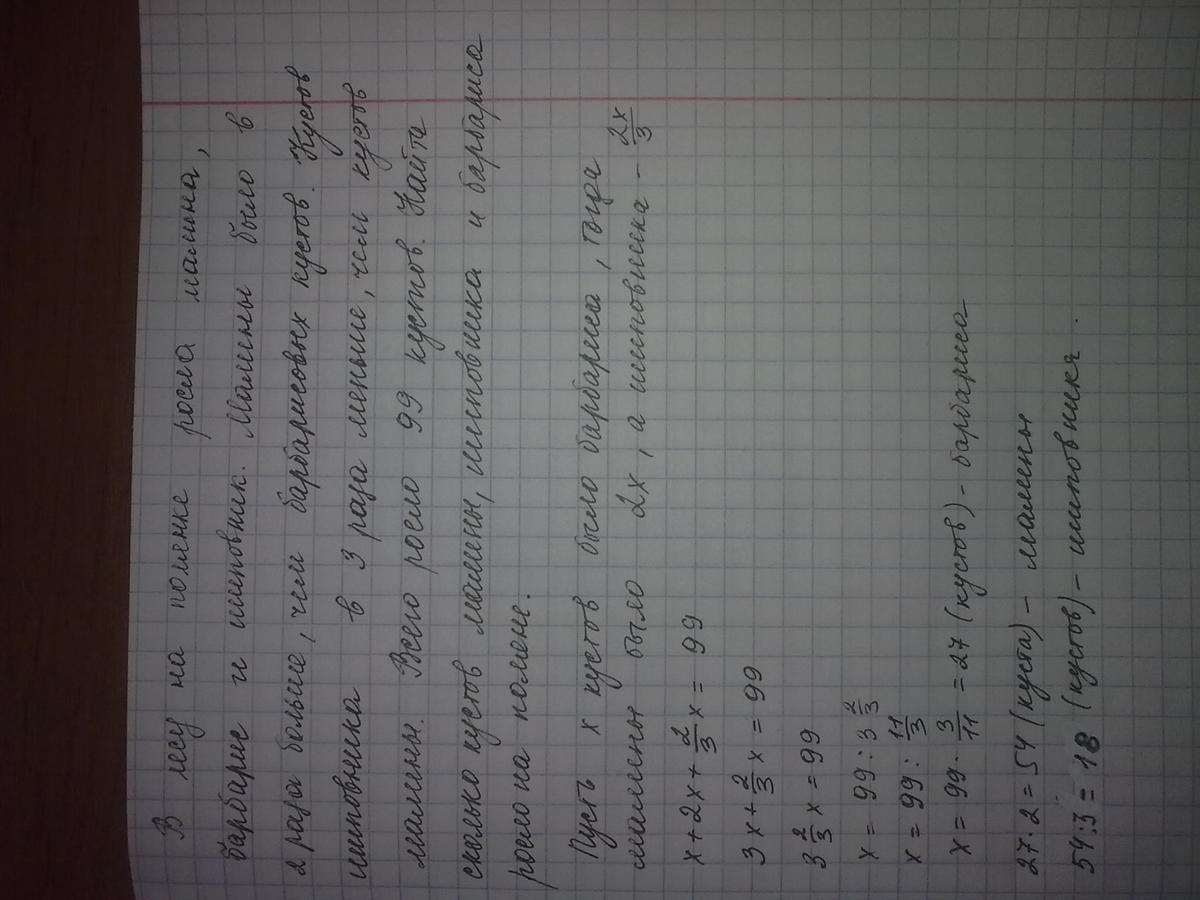 В лесу на полянке росла малина,
барбарис и шиповник. Малины было в
2 раза больше, чем барбарисовых кустов. Кустов
шиповника в 3 раза меньше, чем кустов
малины. Всего росло 99 кустов. Найти
сколько кустов малины, шиповника и барбариса
росло на поляне.
Пусть x кустов было барбариса, тогда
малины было 2x, а шиповника - 2x/3
x + 2x + 2/3 x = 99
3x + 2/3 x = 99
3 2/3 x = 99
x = 99 : 3 2/3
x = 99 : 11/3
x = 99 · 3/11 = 27 (кустов) - барбариса
27 · 2 = 54 (куста) - малины
54 : 3 = 18 (кустов) - шиповника.